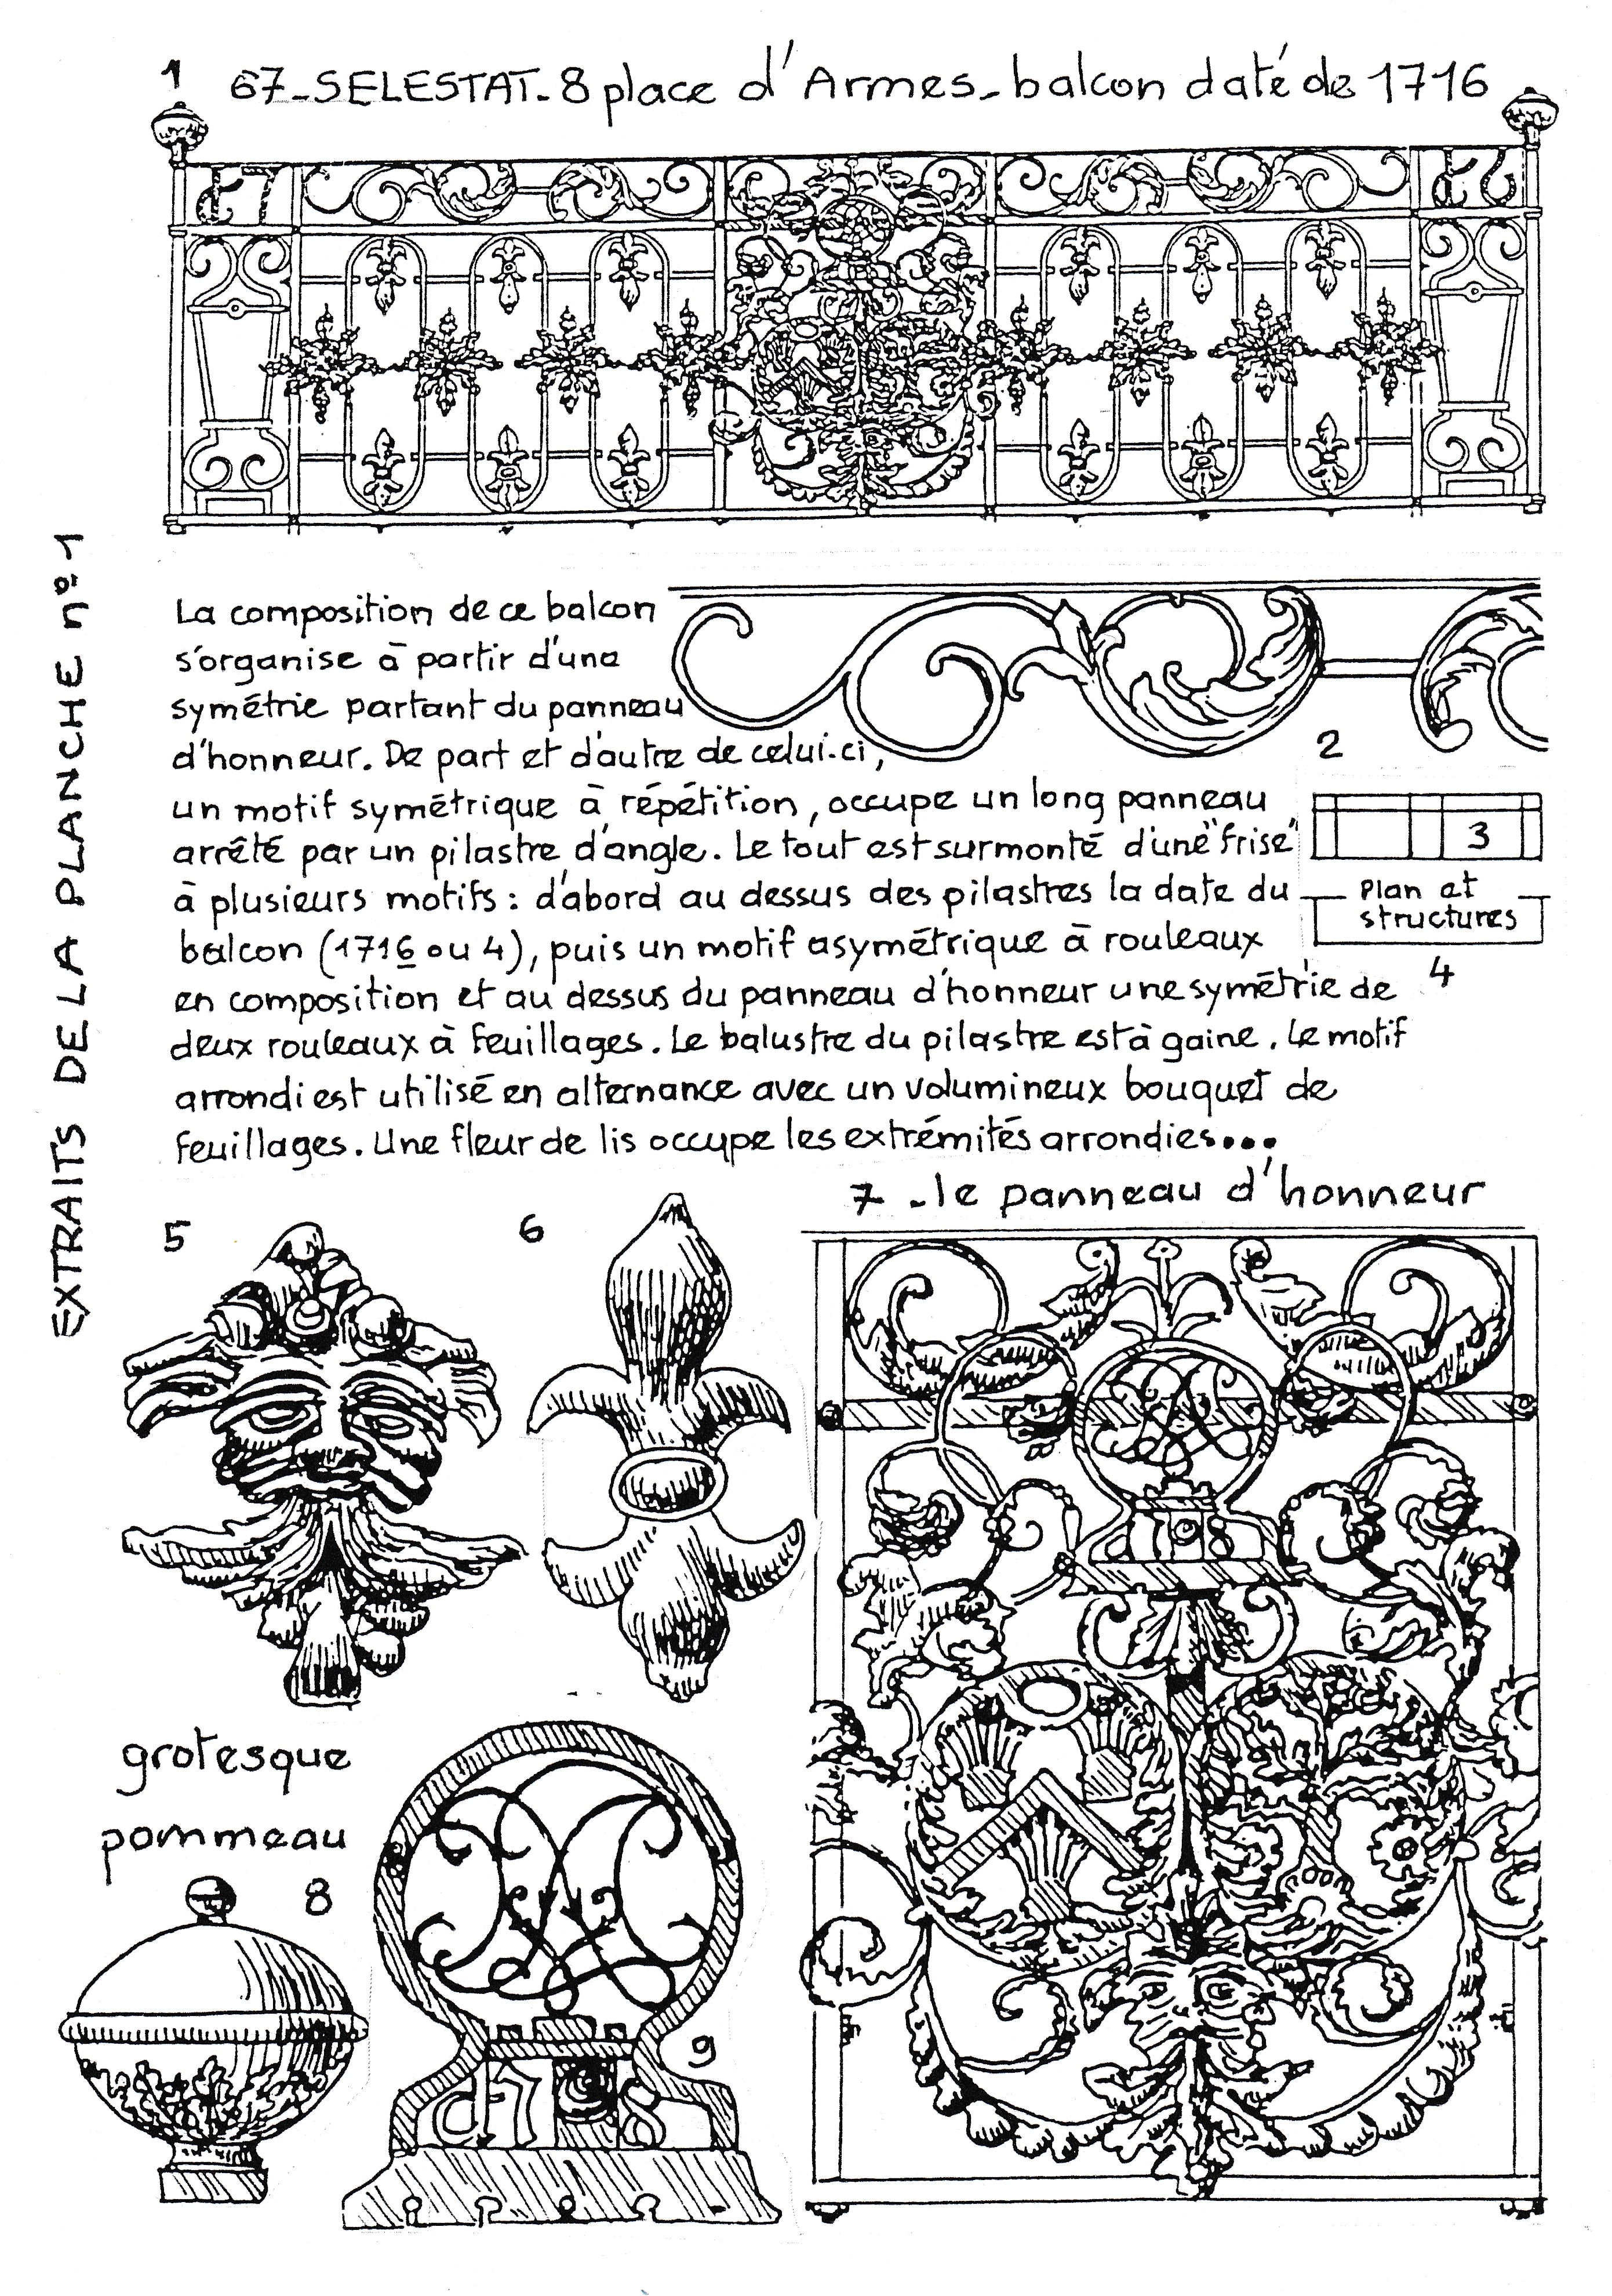 1 67_SELESTAT_8 place d'Armes_balcon daté de 1716
La composition de ce balcon
s'organise à partir d'une
symétrie partant du panneau
d'honneur. De part et d'autre de celui-ci,
un motif symétrique à répétition, occupe un long panneau
arrêté par un pilastre d'angle. Le tout est surmonté d'une "frise"
à plusieurs motifs : d'abord au dessus des pilastres la date du
balcon (1716 ou 4), puis un motif asymétrique à rouleaux
en composition et au dessus du panneau d'honneur une symétrie de
deux rouleaux à feuillages. Le balustre du pilastre est à gaine. Le motif
arrondi est utilisé en alternance avec un volumineux bouquet de
feuillages. Une fleur de lis occupe les extrémités arrondies...
2
3
Plan et
structures
4
EXTRAITS DE LA PLANCHE nº1
5
6
7 _ le panneau d'honneur
grotesque
pommeau
8
9